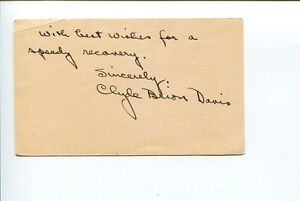 With best wishes for a
speedy recovery.
Sincerely,
Clyde Brion Davis